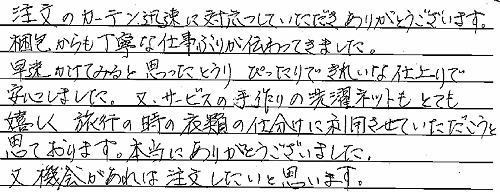 注文のカーテン迅速に対応していただきありがとうございます。
梱包からも丁寧な仕事ぶりが伝わってきました。
早速かけてみると思ったとうり ぴったりできれいな仕上りで
安心しました。又、サービスの手作りの洗濯ネットもとても
嬉しく 旅行の時の衣類の仕分けに利用させていただこうと
思ております。本当にありがとうございました。
又 機会があれば注文したいと思います。